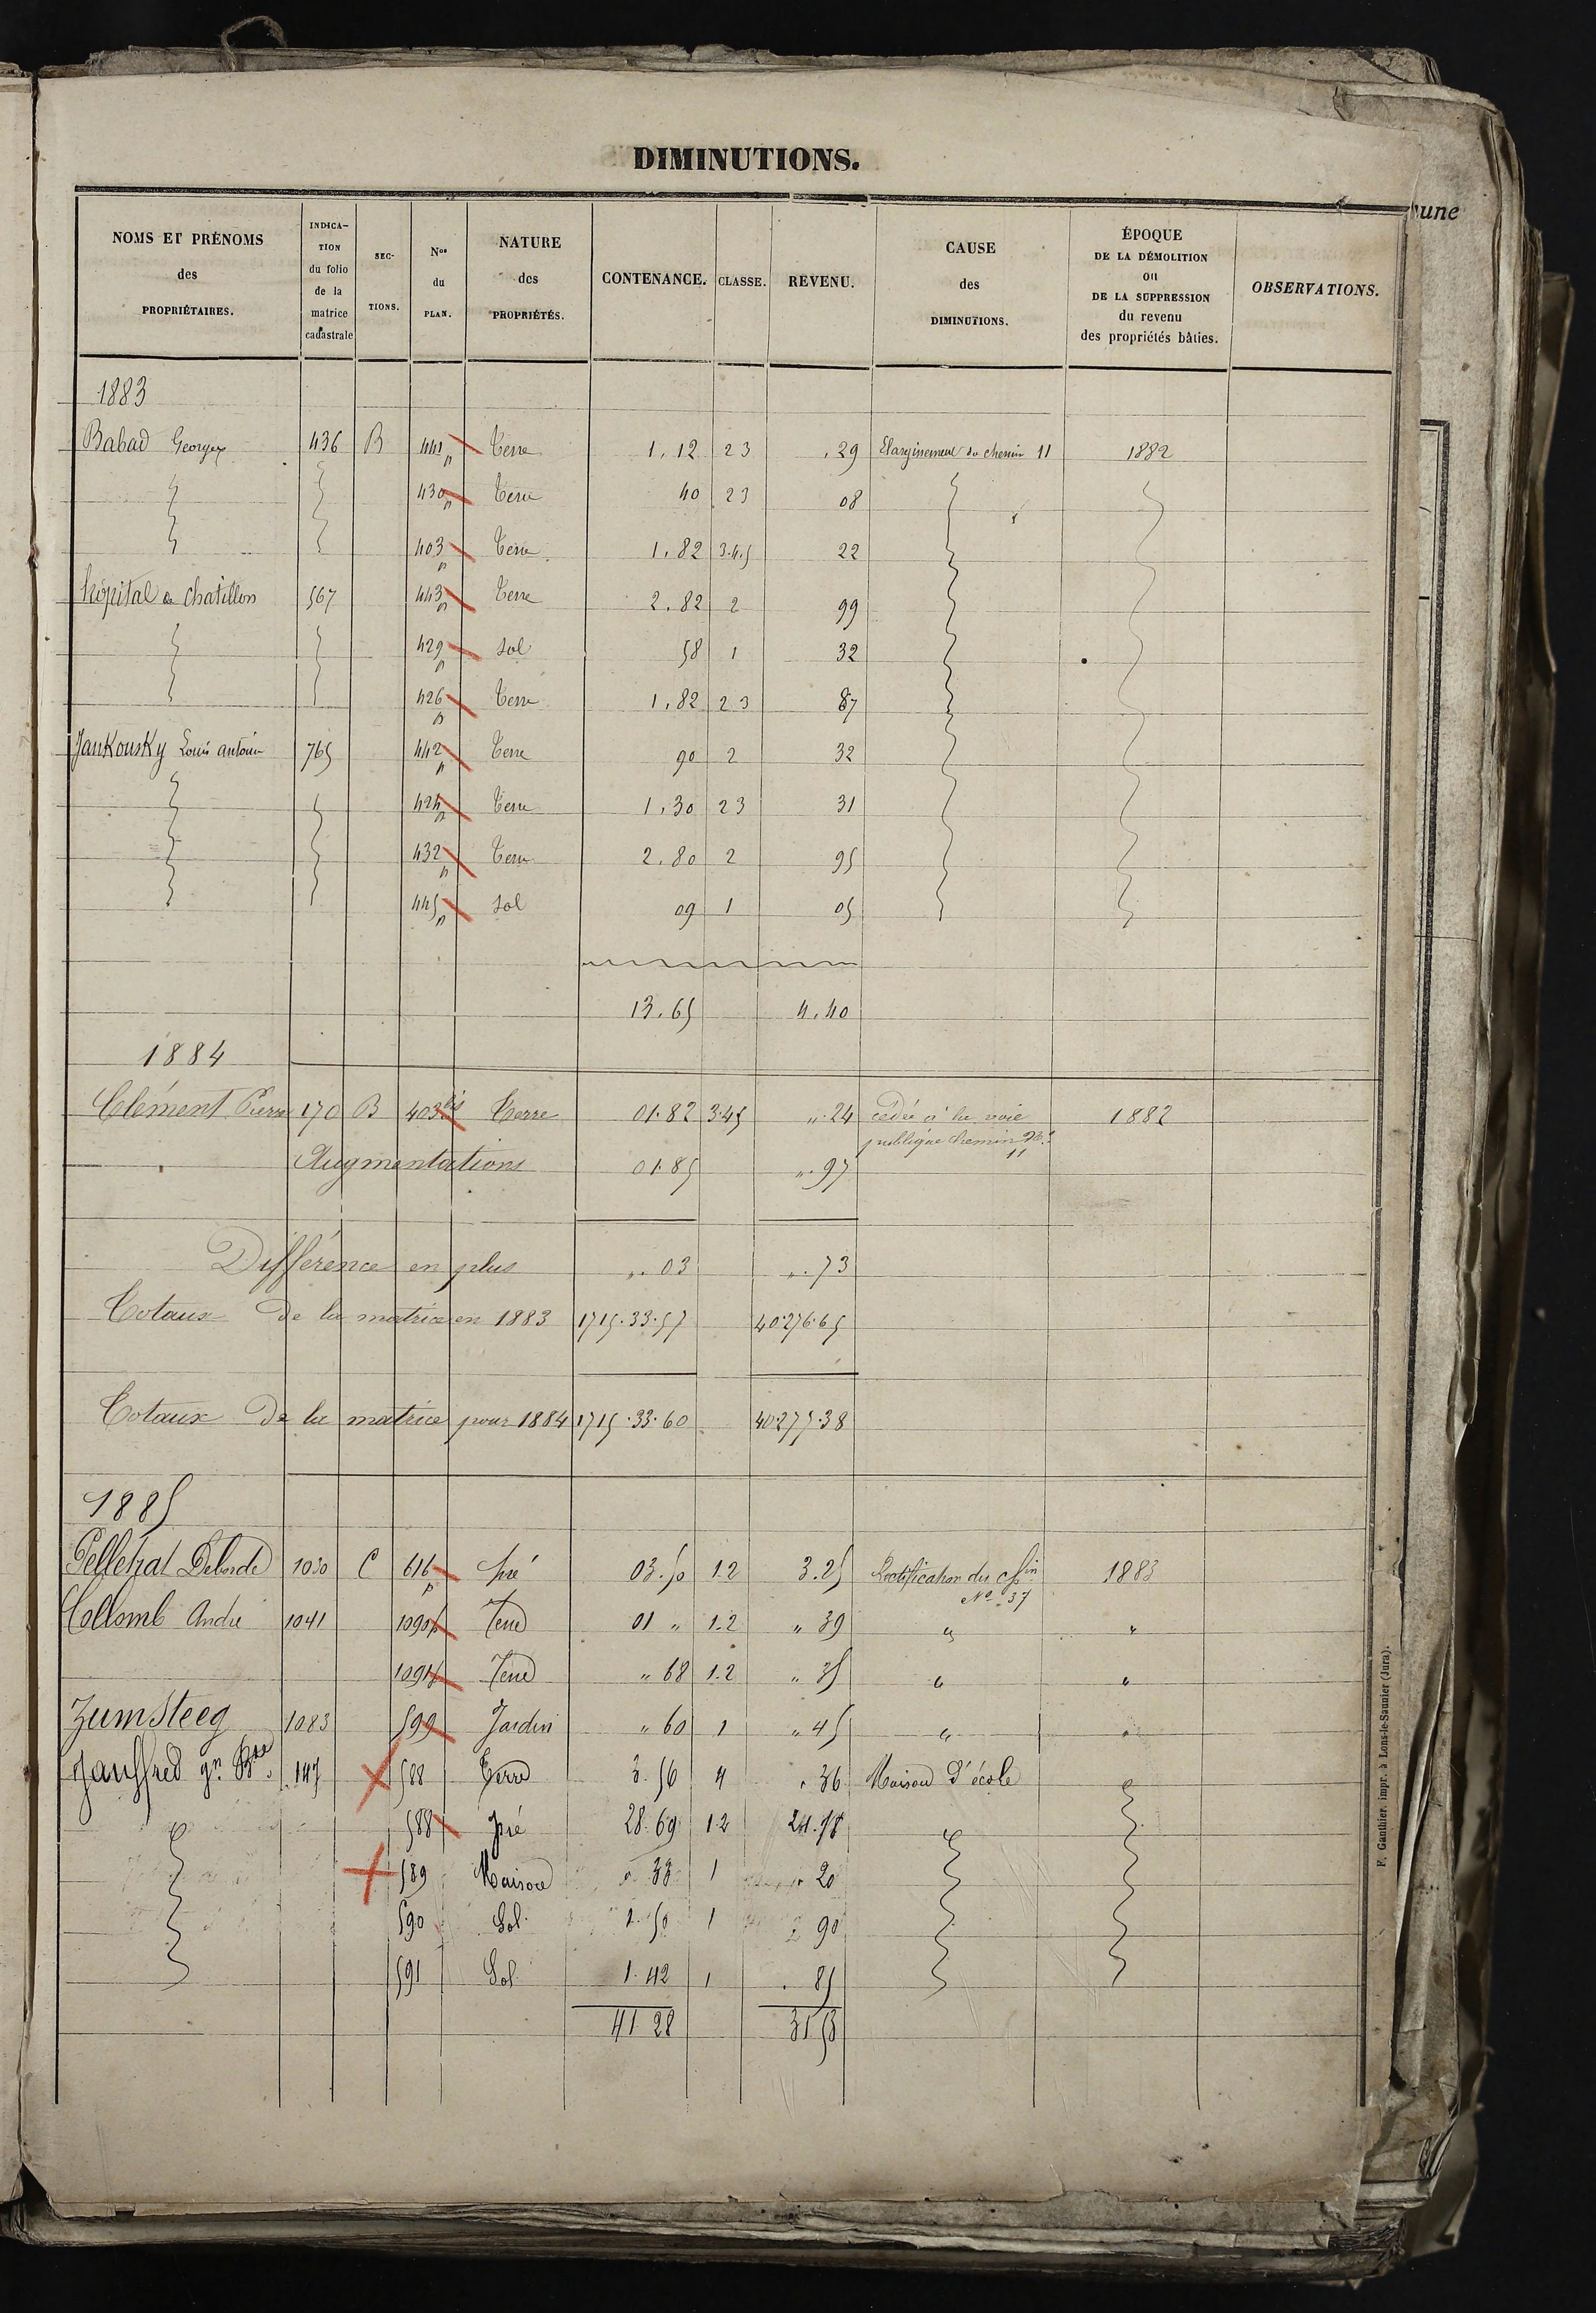 DIMINUTIONS.
une
NOMS ET PRÉNOMS des PROPRIÉTAIRES. INDICATION du folio de la matrice cadastrale SECTIONS. Nos du PLAN. NATURE des PROPRIÉTÉS. CONTENANCE. CLASSE. REVENU. CAUSE des DIMINUTIONS. ÉPOQUE DE LA DÉMOLITION ou DE LA SUPPRESSION du revenu des propriétés bâties. OBSERVATIONS.
1883
Babad Georges 436 B 441 p Terre 1,12 23 ,29 Elargissement du chemin 11 1882
430 p Terre 40 23 08
403 p Terre 1,82 3.4.5 22
hôpital de chatillon 567 443 p Terre 2,82 2 99
429 p sol 58 1 32
426 p Terre 1,82 23 87
Jankousky Louis antoine 765 442 p Terre 90 2 32
424 p Terre 1,30 23 31
432 p Terre 2,80 2 95
445 p sol 09 1 05
13.65 4,40
1884
Clément Pierre 170 B 403 bis Terre 01.82 3.45 ". 24 cédée à la voie 1882
publique chemin No 11
Augmentations 01.85 ". 97
Différence en plus ". 03 ". 73
Totaux de la matrice en 1883 1715.33.57 40276.65
Totaux de la matrice pour 1884 1715.33.60 40277.38
1885
Pellehat Deborde 1030 C 616 p pré 03.50 1.2 3.25 Rectification du chin 1883
No 37
Collomb André 1041 1090 p Terre 01 " 1.2 " 39 " "
1091 p Terre " 68 1.2 " 35 " "
Zumsteeg 1083 599 Jardin " 60 1 " 45 " "
Jauffred 147 588 Terre 3.56 4 . 36 Maison d'école
588 pré 28.69 1.2 24.78
589 Maison " 33 1 " 20
590 Sol 1.50 1 90
591 Sol 1.42 1 . 85
41 28 31 53
F. Gauthier, impr. à Lons-le-Saunier (Jura).